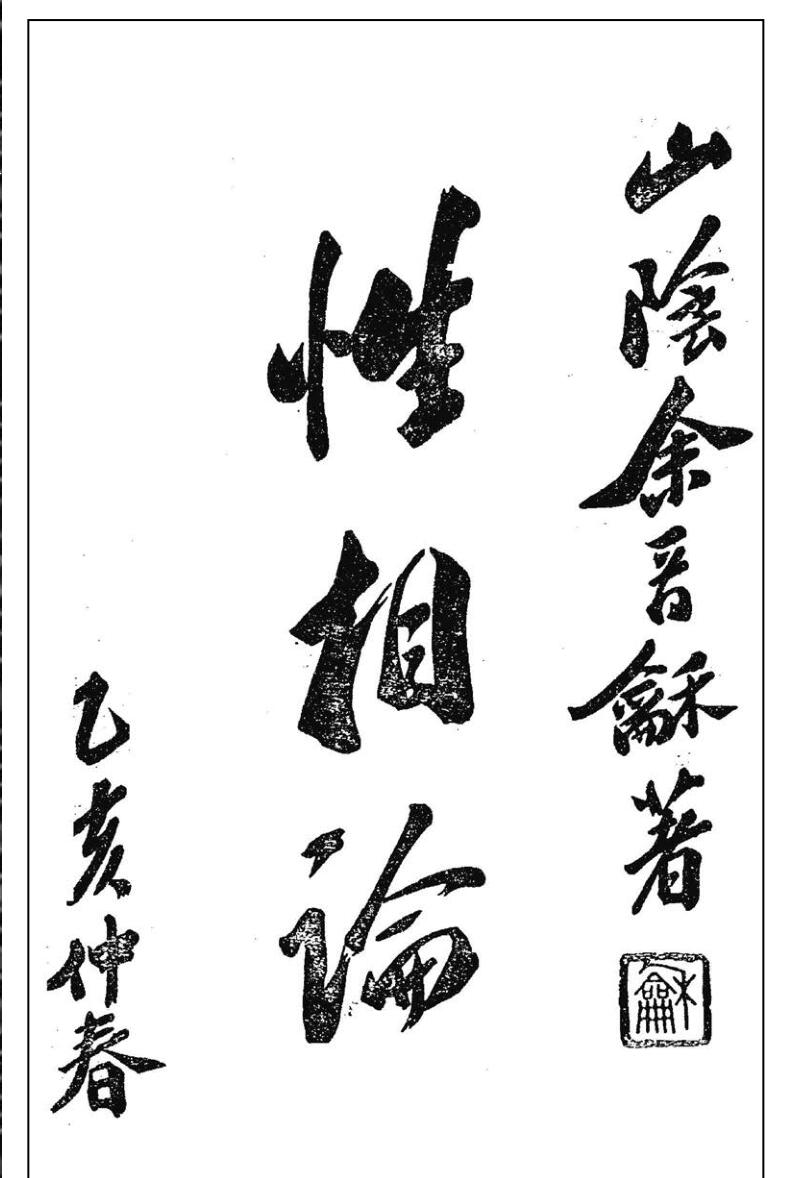 山陰余晋龢著
龢
性相論
乙亥仲春